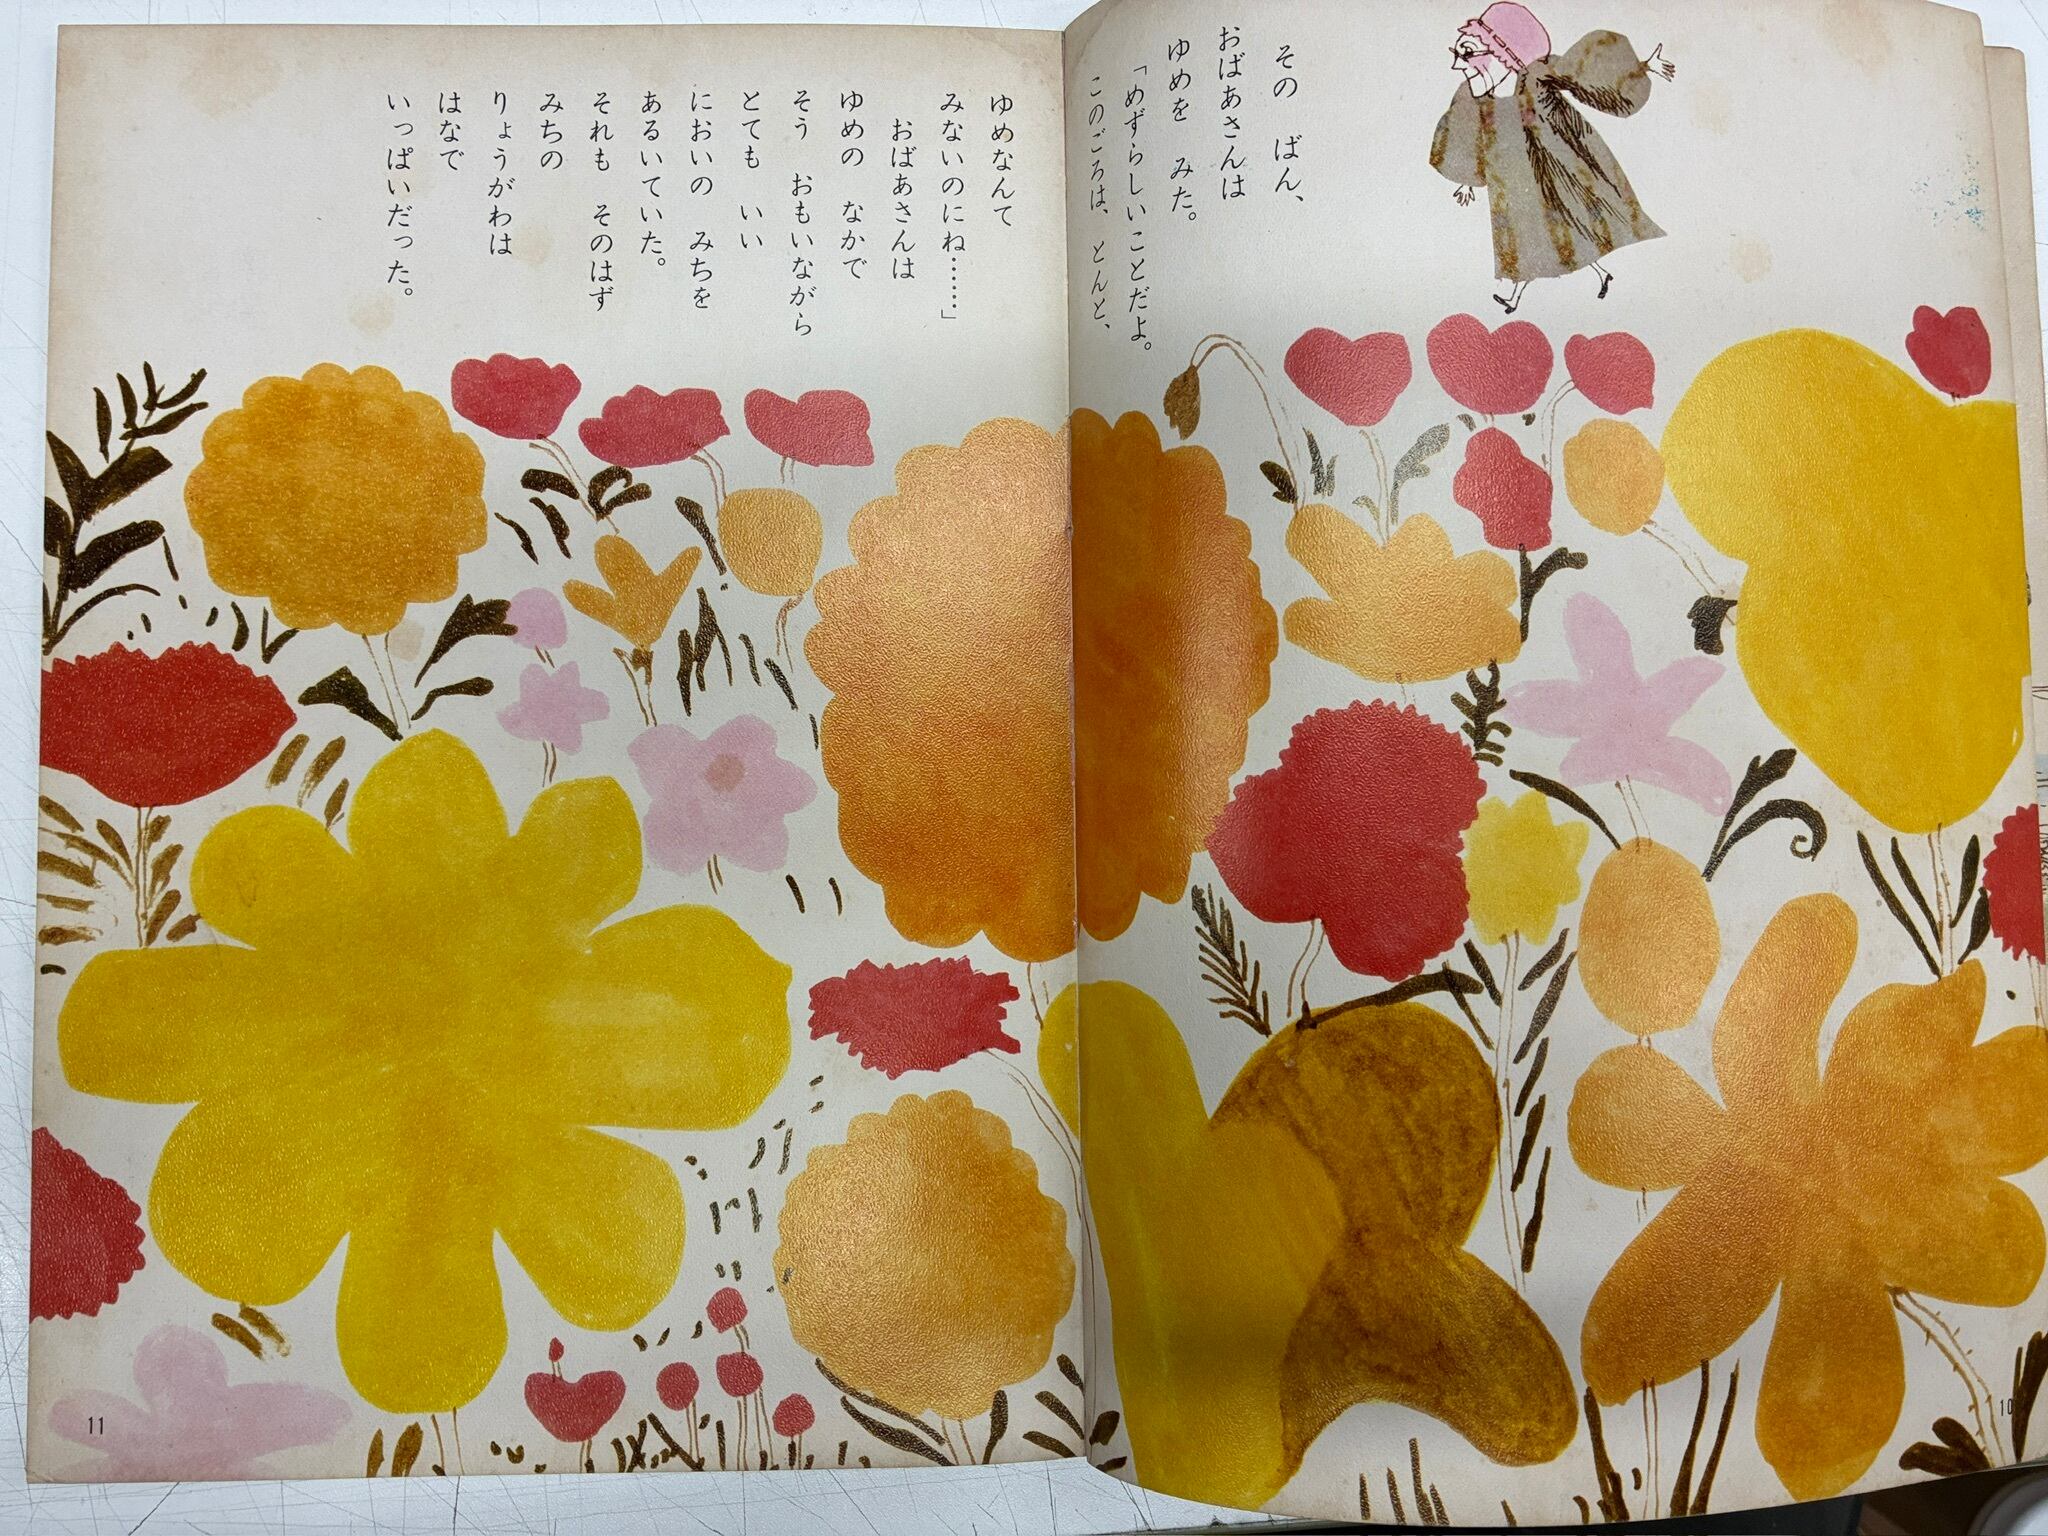 その　ばん、
おばあさんは
ゆめを　みた。
「めずらしいことだよ。
このごろは、とんと、
ゆめなんて
みないのにね……」
おばあさんは
ゆめの　なかで
そう　おもいながら
とても　いい
においの　みちを
あるいていた。
それも　そのはず
みちの
りょうがわは
はなで
いっぱいだった。
10
11